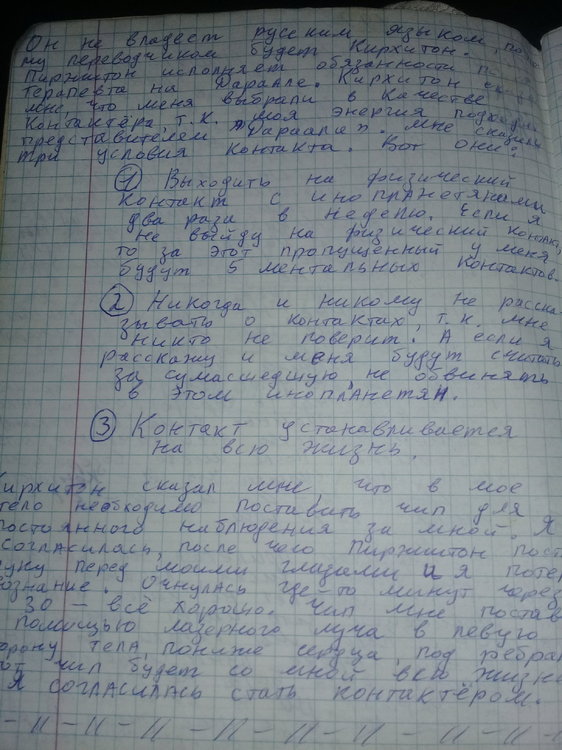 Он не владеет русским языком, поэто
му переводчиком будет Кирхитон.
Пиржитон исполняет обязанности
Терапевта на Дараале. Кирхитон сказал
мне, что меня выбрали в качестве
контактёра, т.к. моя энергия подходит
представителем "Дараала". Мне сказали
три условия контакта. Вот они:
① Выходить на физический
контакт с инопланетянами
два раза в неделю. Если я
не выйду на физический контакт,
то за этот пропущенный у меня
будут 5 ментальных контактов.
② Никогда и никому не расска
зывать о контактах, т.к. мне
никто не поверит. А если я
расскажу и меня будут считать
за сумасшедшую, не обвинять
в этом инопланетян.
③ Контакт устанавливается
на всю жизнь.
Кирхитон сказал мне что в мое
тело необходимо поставить чип для
постоянного наблюдения за мной. Я
согласилась, после чего Пиржитон пост
руку перед моими глазами и я поте
сознание. Очнулась где-то минут через
30 - всё хорошо. Чип мне постав
помощью лазерного луча в левую
сторону тела, пониже сердца, под ребра
от чип будет со мной всю жизн
Я согласилась стать контактёром.
- // - // - // - // - // - // - // - //